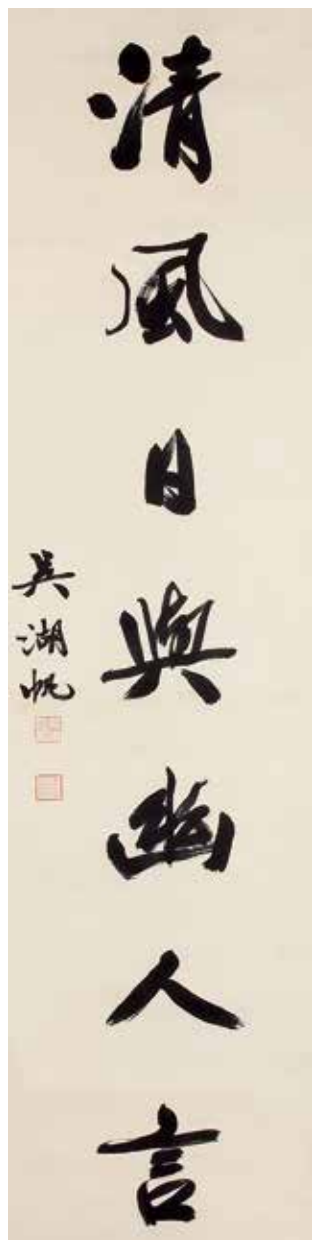 清風日與幽人言
吳湖帆